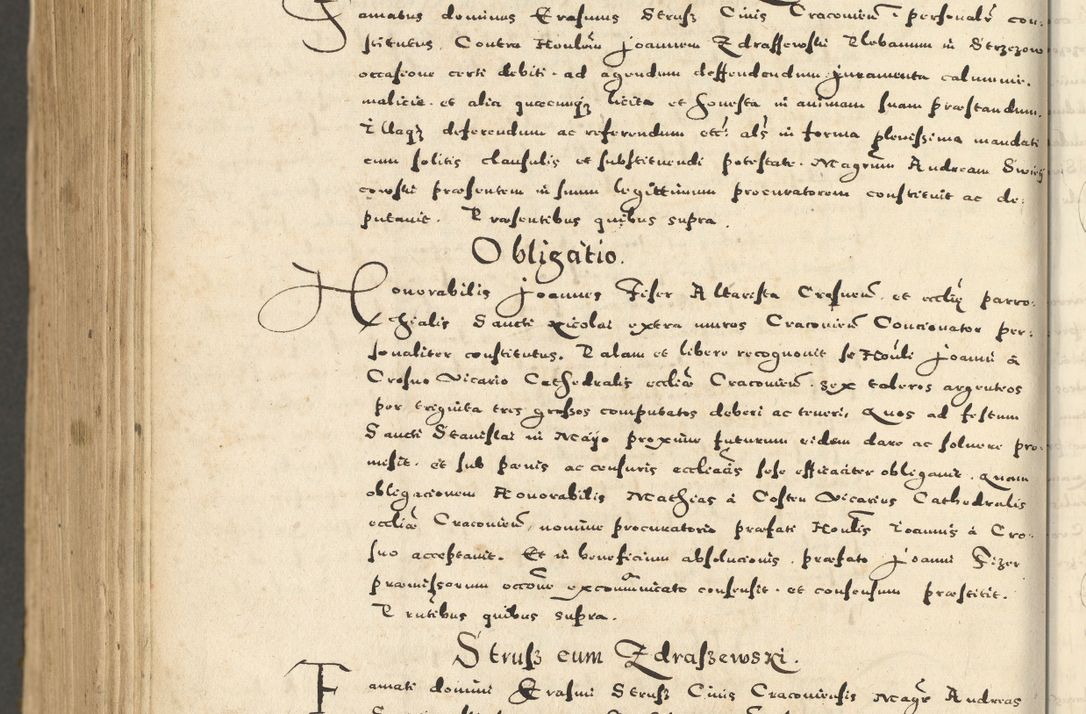 Famatus dominus Erasmus Strusz Civis Cracovien̄ personalr̄ con-
stitutus. Contra Honblem Joannem Zdrassewski Plebanum in Strzezow
occasione certi debiti. ad agendum deffendendum. juramenta calumnie.
malicie. et alia quecunqȝ licita et honesta in animam suam præstandum.
Illaqȝ deferendum ac referendum etc: als̄ in forma plenissima mandati
cum solitis clausulis et substituendi potestate. Magrum Andream Swięt
cowski præsentem in suum legittimum procuratorem constituit ac de-
putavit. Præsentibus quibus supra.
Obligatio.
Honorabilis Joannes Fiser Altarista Crosnen̄. et eccliæ parro-
chialis Sancti Nicolai extra muros Cracovien̄ Concionator per-
sonaliter constitutus. Palam et libere recognovit se Honbli Joanni à
Crosno Vicario Cathedralis eccliæ Cracovien̄. sex taleros argenteos
per triginta tres grossos computatos deberi ac teneri. Quos ad festum
Sancti Stanislai in Mayo proxime futurum eidem dare ac solvere pro-
misit. et sub pœnis ac censuris eccliacis sese efficaciter obligavit. Quam
obligacionem Honorabilis Mathias à Costen Vicarius Cathedralis
eccliæ Cracovien̄, nomine procuratorio præfati Honblis Joannis à Cro-
sno acceptavit. Et in beneficium absolucionis. præfato Joanni Fizer
præmissorum occone excommunicato consensit. et consensum præstitit.
Pntibus quibus supra.
Strusz cum Zdraszewski.
Famati domini Erasmi Strusz Civis Cracoviensis Magr Andreas